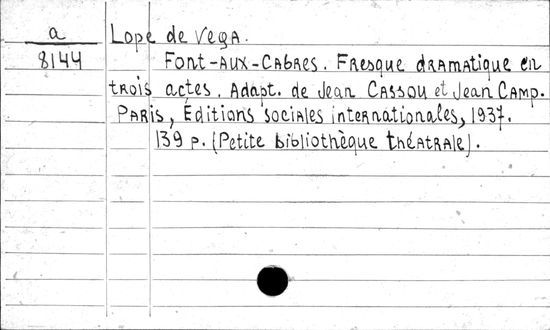 a Lope de Vega.
8144 Font-aux-Cabres. Fresque dramatique en
trois actes. Adapt. de Jean Cassou et Jean Camp.
Paris, Éditions sociales internationales, 1937.
139 p. (Petite bibliothèque théatrale).